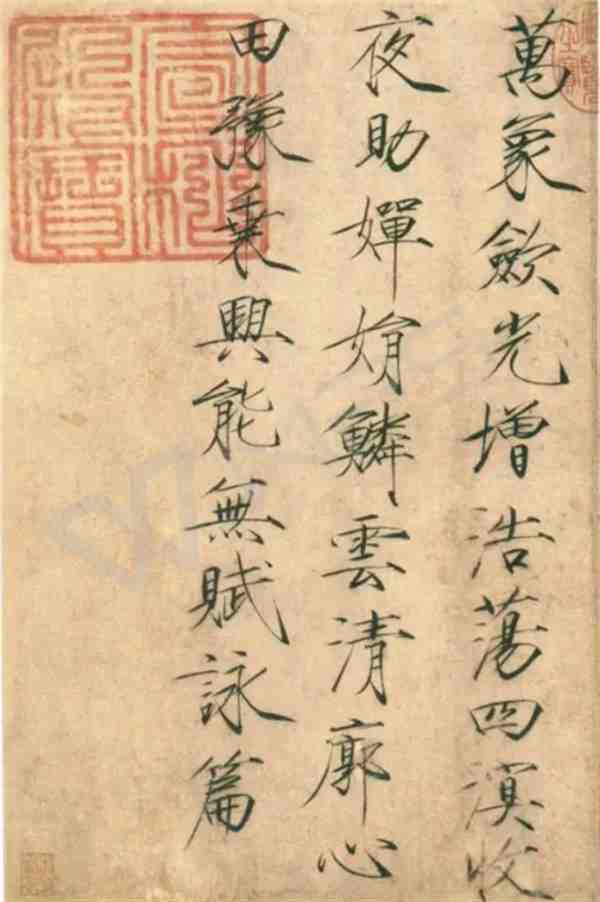 萬象歛光增浩蕩四溟收
夜助嬋娟鱗雲清廓心
田豫乗興能無賦詠篇